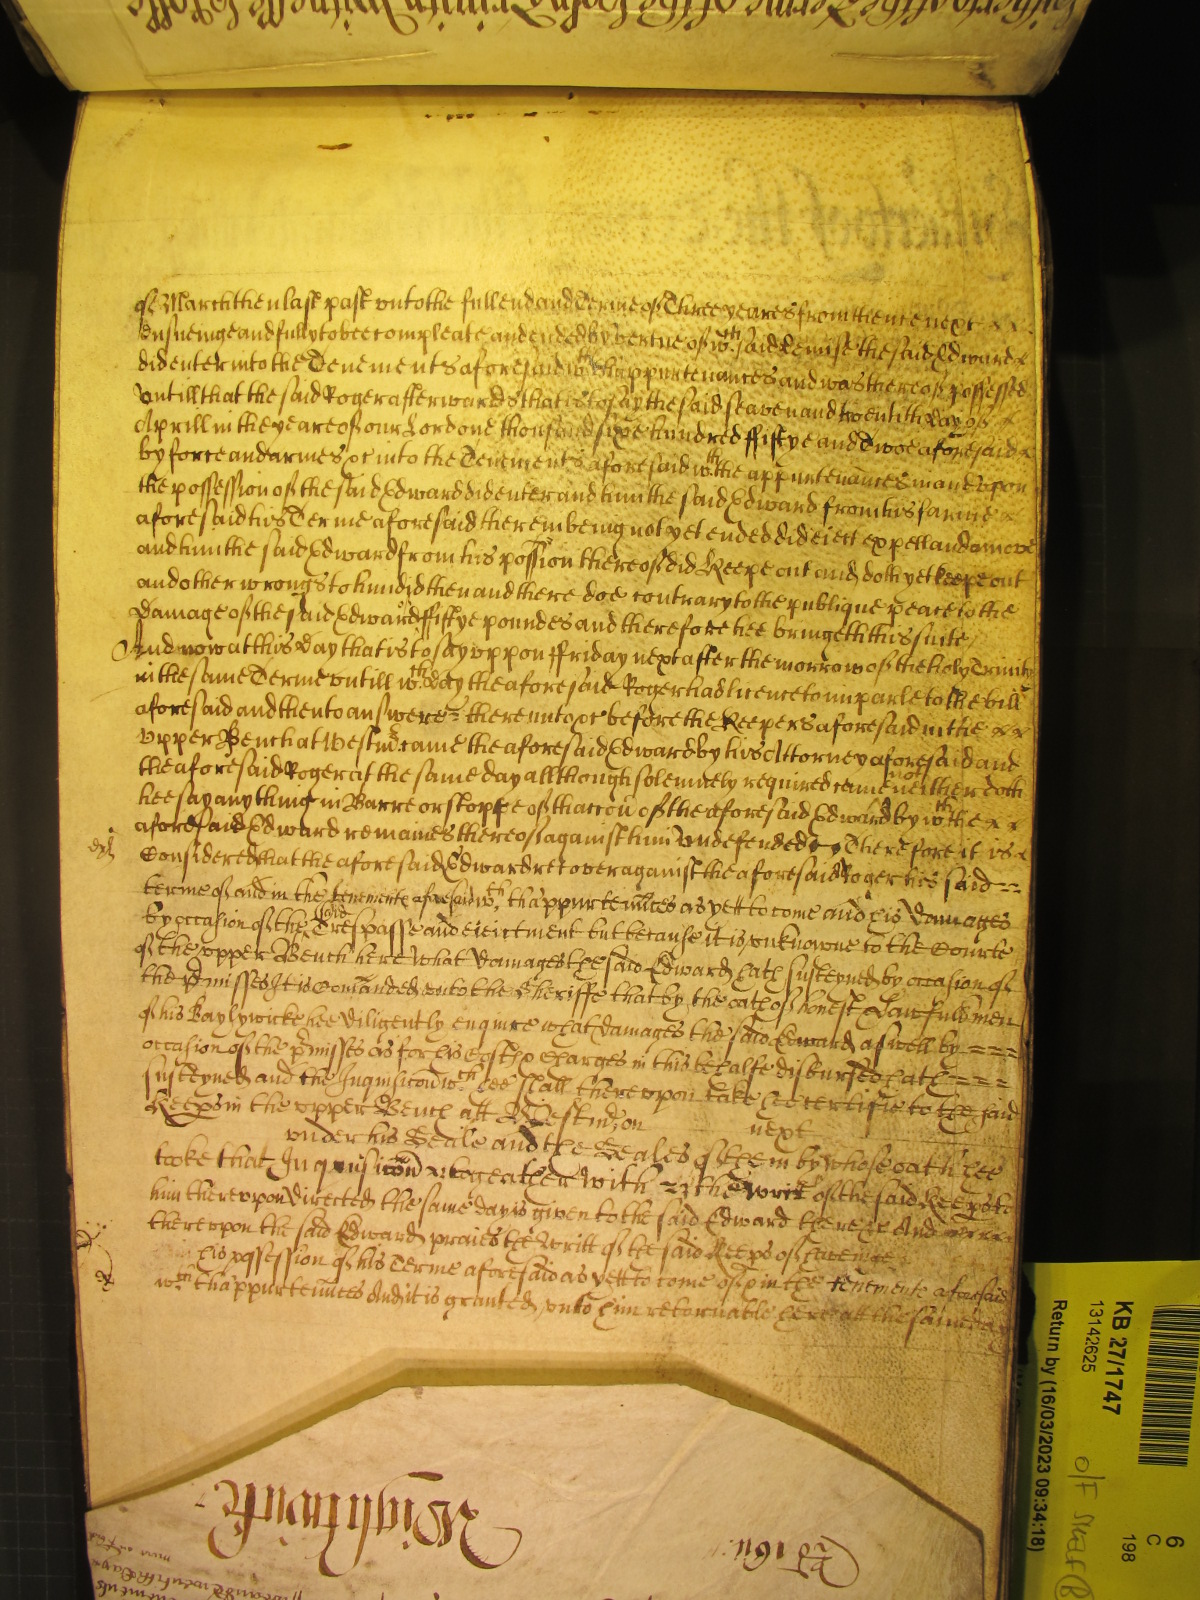 of March then last past unto the full end and Terme of Three yeares from thence next
Ensueinge and fully to bee compleate and ended by vertue of wch said Demise the said Edward
did enter into the Tenements aforesaid wth thappurtenances and was thereof possessed
Untill that the said Roger afterwards that is to say the said seaven and twentith day of
Aprill in the yeare of our Lord one thousand sixe hundred fiftye and Twoe aforesaid
by force and armes &c into the Tenements aforesaid wth the appurtenances in and upon
the possession of the said Edward did enter and him the said Edward from his farme
aforesaid his Terme aforesaid therein being not yet ended did eiect expell and amove
and him the said Edward from his possion thereof did Keepe out and doth yet keepe out
and other wrongs to him did then and there doe contrary to the publique peace to the
damage of the said Edward of ffiftye poundes and therefore hee bringeth this suite
And now at this day that is to say uppon ffriday next after the morrow of the holy Trinity
in the same Terme untill wch day the aforesaid Roger had licence to imparle to the bill
aforesaid and then to answere thereunto &c before the Keepers aforesaid in the
Upper Bench at Westmr came the aforesaid Edward by his Attorney aforesaid and
the aforesaid Roger at the same day allthough solemnely required came not neither doth
hee say any thing in Barre or stoppe of thaccon of the aforesaid Edward by wch the
aforesaid Edward remaines thereof against him undefended Therefore it is
Considered that the aforesaid Edward recover against the aforesaid Roger his said
terme of and in the tenements aforesaid wth thappurtenntes as yett to come and his damages
by occasion of the said Trespasse and eiectment but because it is unknowne to the Courte
of the upper Bench here what damages the said Edward hath susteyned by occasion of
the pmisses It is Comanded unto the Sheriffe that by the oath of honest & Lawfull men
of his Baylywicke hee diligently enquire what damages the said Edward as well by
occasion of the pmisses as for his costs & charges in this behalfe disbursed hath
susteyned and the Inquisicon wch hee shall thereupon take hee certifie to the said
Keeps in the upper Bench att Westmr on next
under his Seale and the Seales of them by whose oath hee
tooke that Inquisicon togeather with the writt of the said Keeps to
him thereupon directed the same day is given to the said Edward there &c And
thereupon the said Edward praies the Writt of the said Keeps of
his possession of his Terme aforesaid as yett to come of & in the tenements aforesaid
wth thappurtenntes And it is granted unto him retornable here att the same day
Wightwick
KB 27/1747
13142625
Return by (16/03/2023 09:34:18)
6
C
198